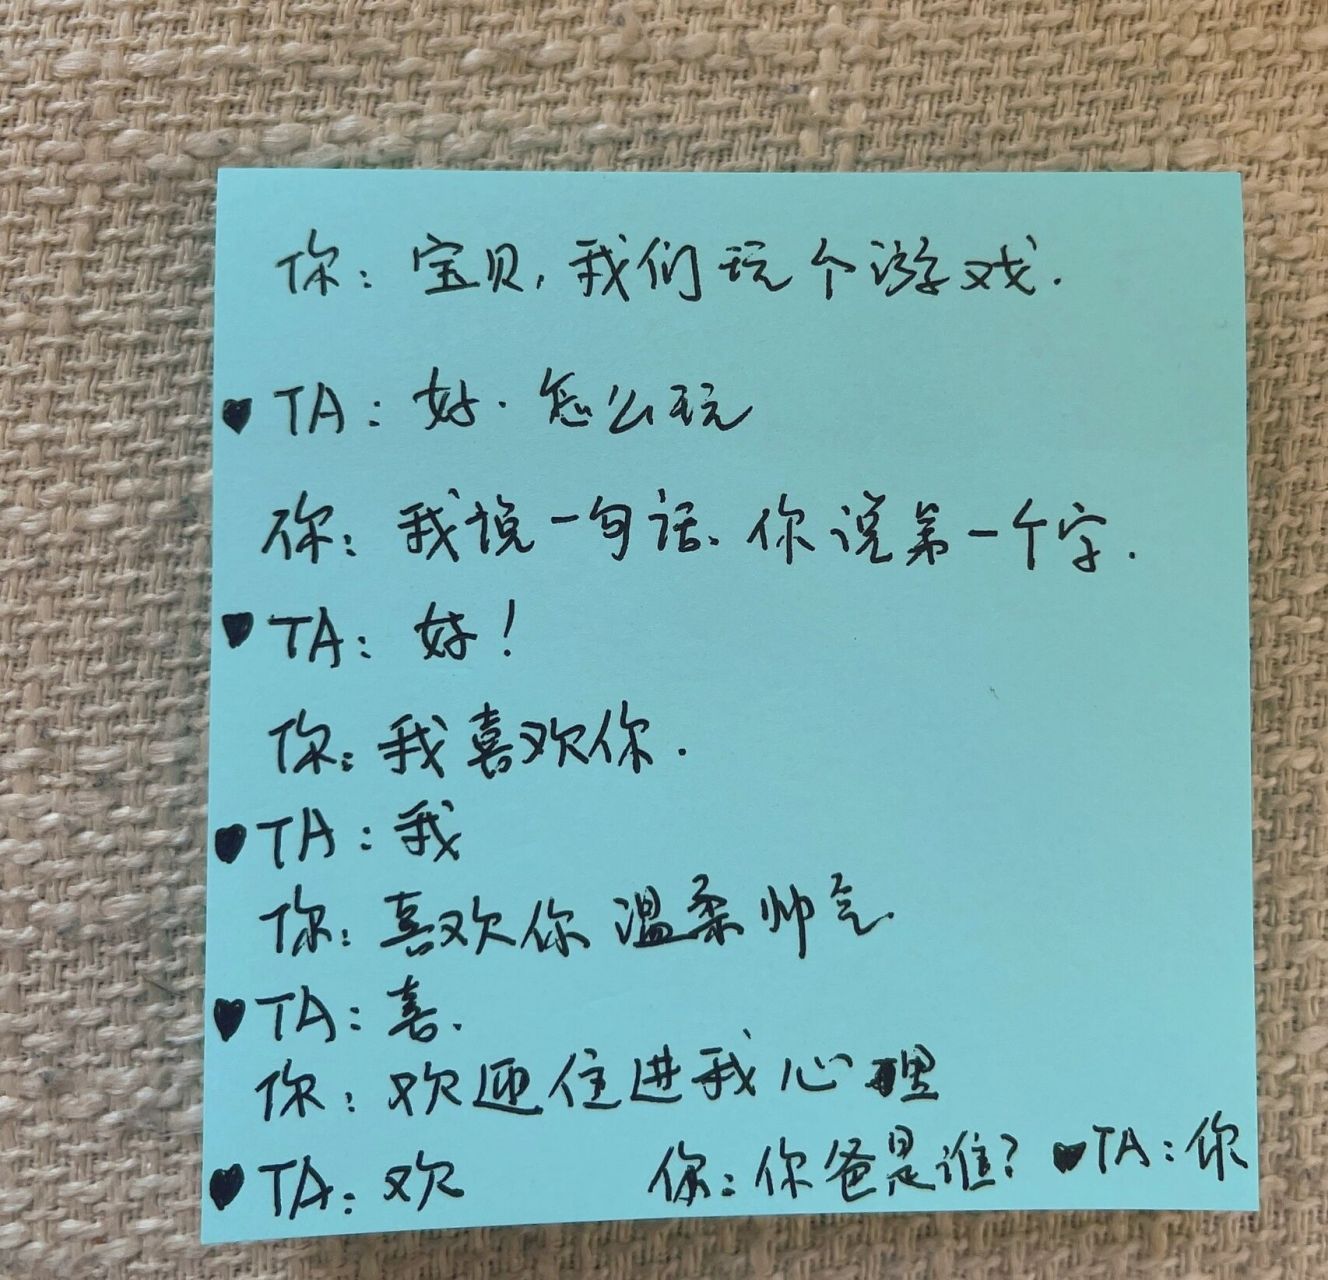 你：宝贝，我们玩个游戏.
♥TA：好.怎么玩
你：我说一句话、你说第一个字.
♥TA：好！
你：我喜欢你.
♥TA：我
你：喜欢你温柔帅气.
♥TA：喜.
你：欢迎住进我心理
♥TA：欢 你：你爸是谁？ ♥TA：你